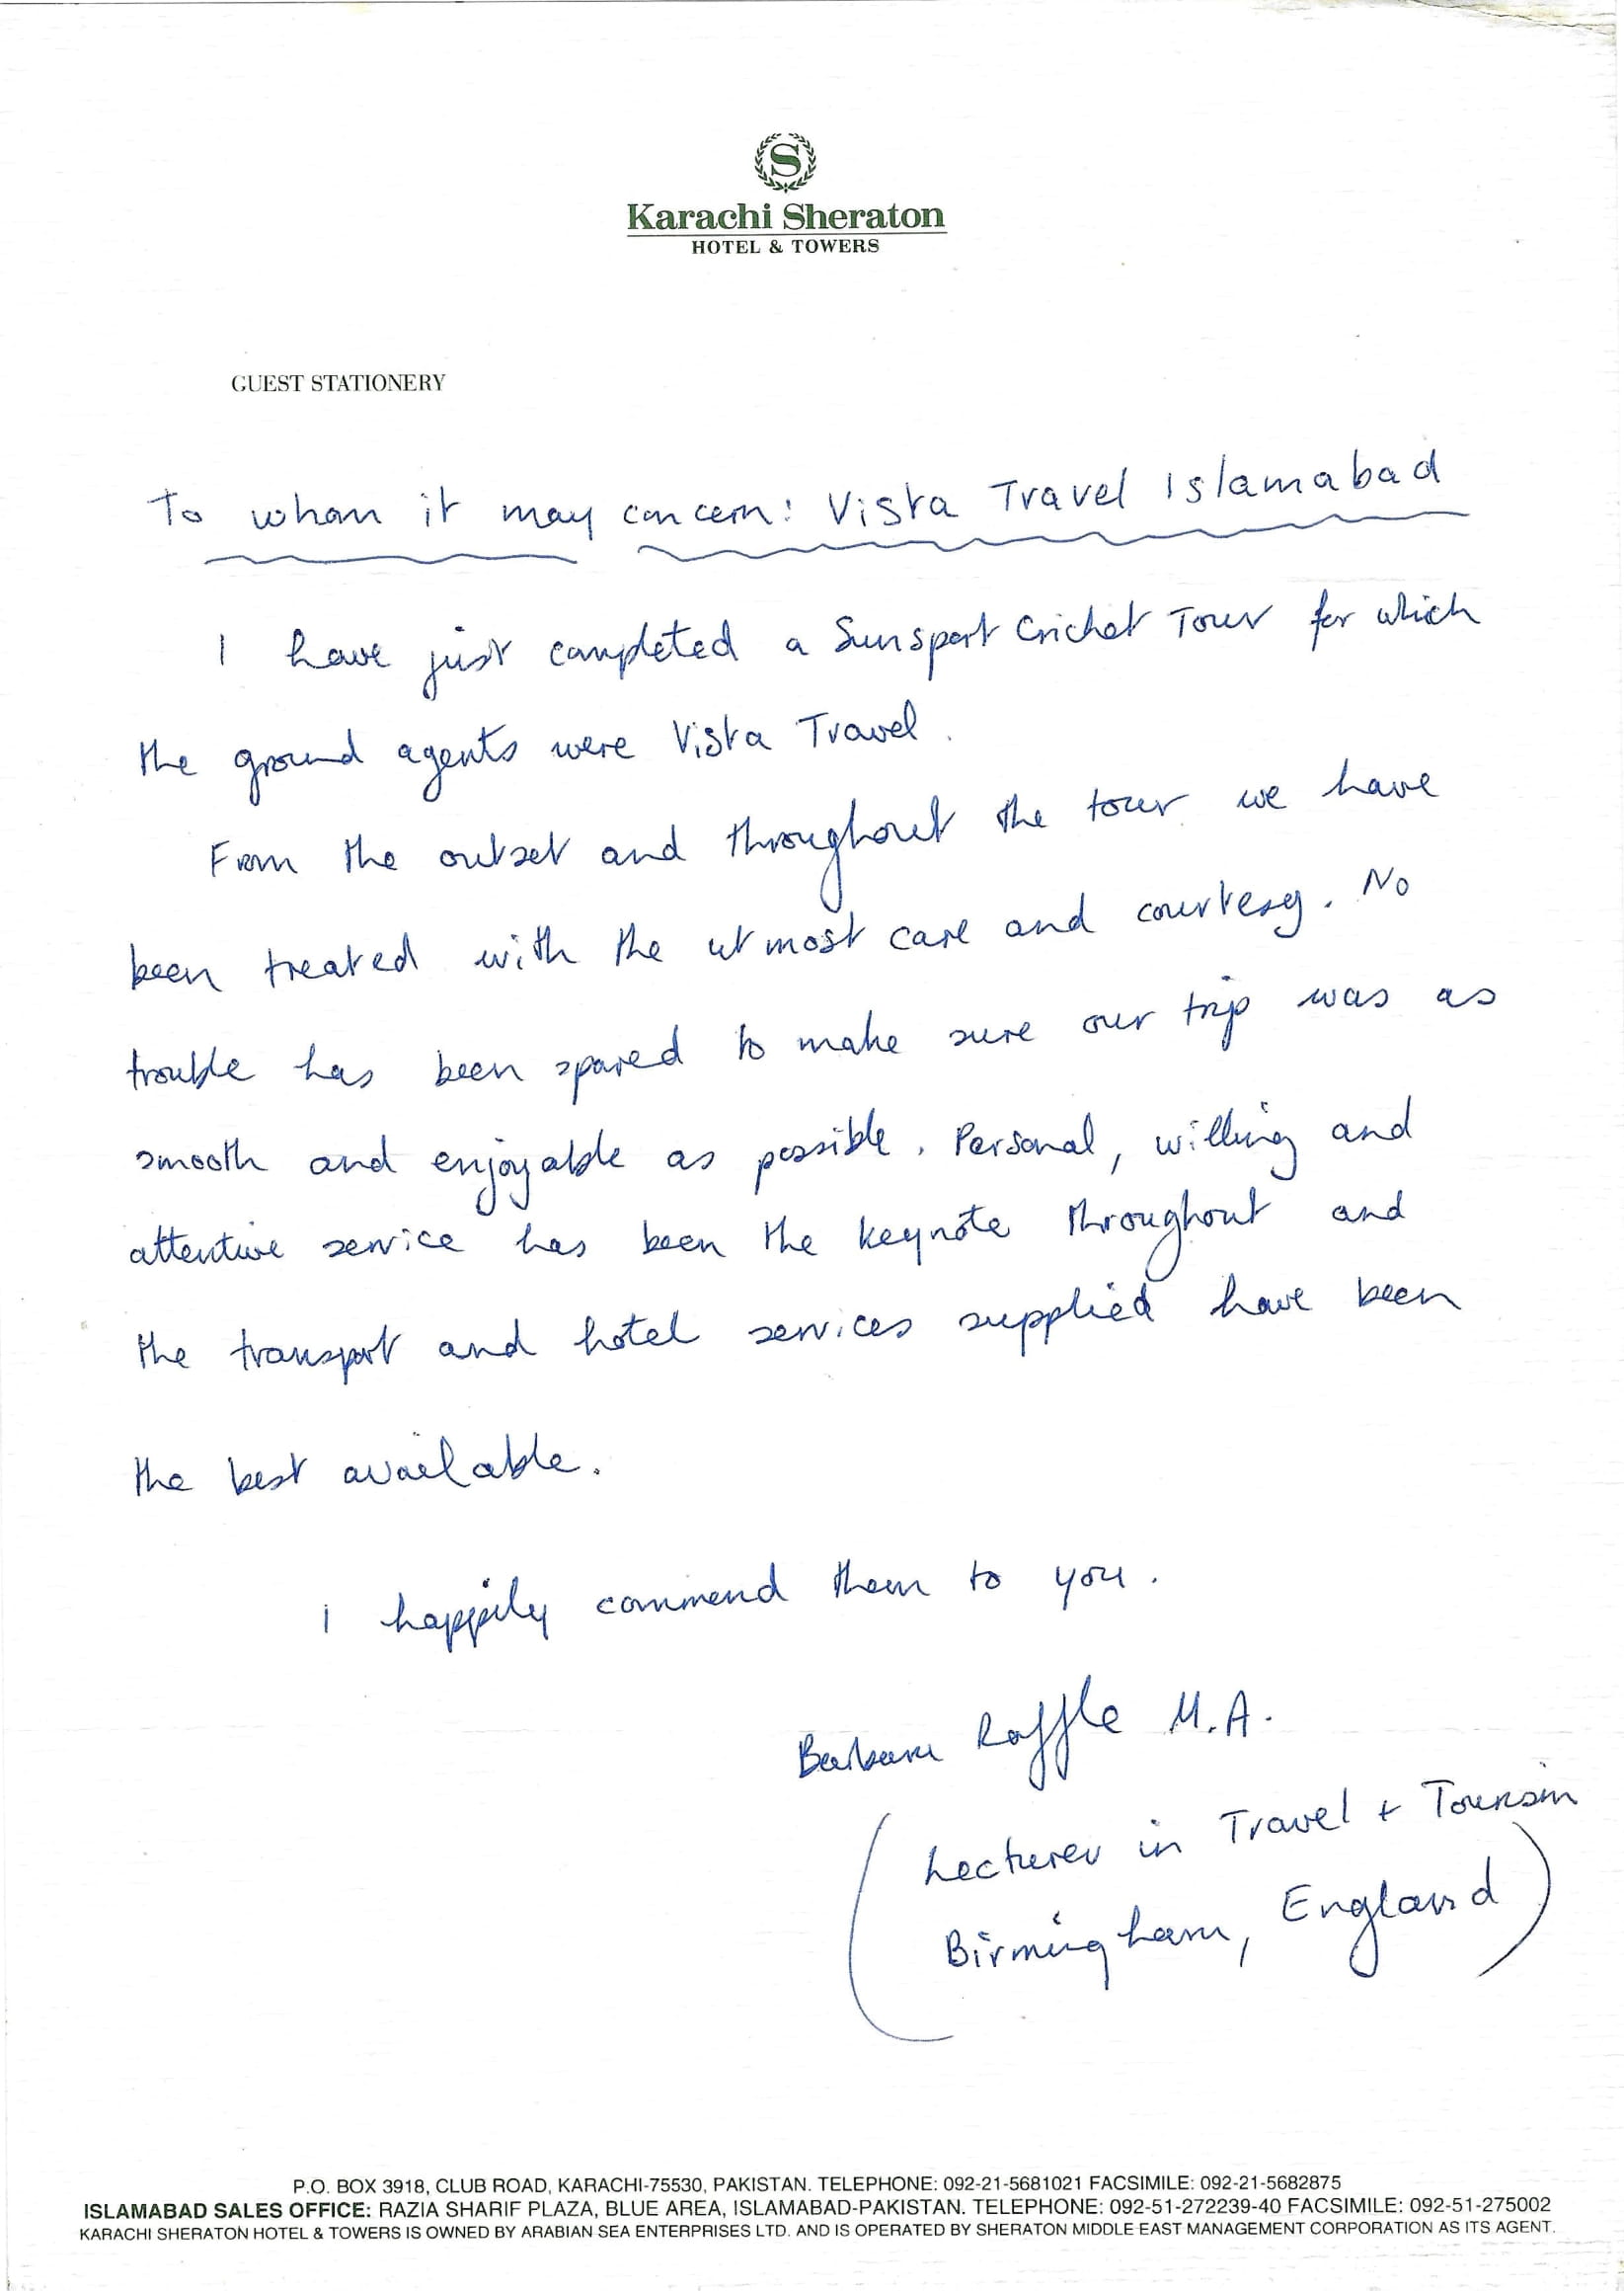 S
Karachi Sheraton
HOTEL & TOWERS
GUEST STATIONERY
To whom it may concern: Vista Travel Islamabad
I have just completed a Sunsport Cricket Tour for which
the ground agents were Vista Travel.
From the outset and throughout the tour we have
been treated with the utmost care and courtesy. No
trouble has been spared to make sure our trip was as
smooth and enjoyable as possible. Personal, willing and
attentive service has been the keynote throughout and
the transport and hotel services supplied have been
the best available.
I happily commend them to you.
Barbara Raffle M.A.
(Lecturer in Travel + Tourism
Birmingham, England)
P.O. BOX 3918, CLUB ROAD, KARACHI-75530, PAKISTAN. TELEPHONE: 092-21-5681021 FACSIMILE: 092-21-5682875
ISLAMABAD SALES OFFICE: RAZIA SHARIF PLAZA, BLUE AREA, ISLAMABAD-PAKISTAN. TELEPHONE: 092-51-272239-40 FACSIMILE: 092-51-275002
KARACHI SHERATON HOTEL & TOWERS IS OWNED BY ARABIAN SEA ENTERPRISES LTD. AND IS OPERATED BY SHERATON MIDDLE EAST MANAGEMENT CORPORATION AS ITS AGENT.